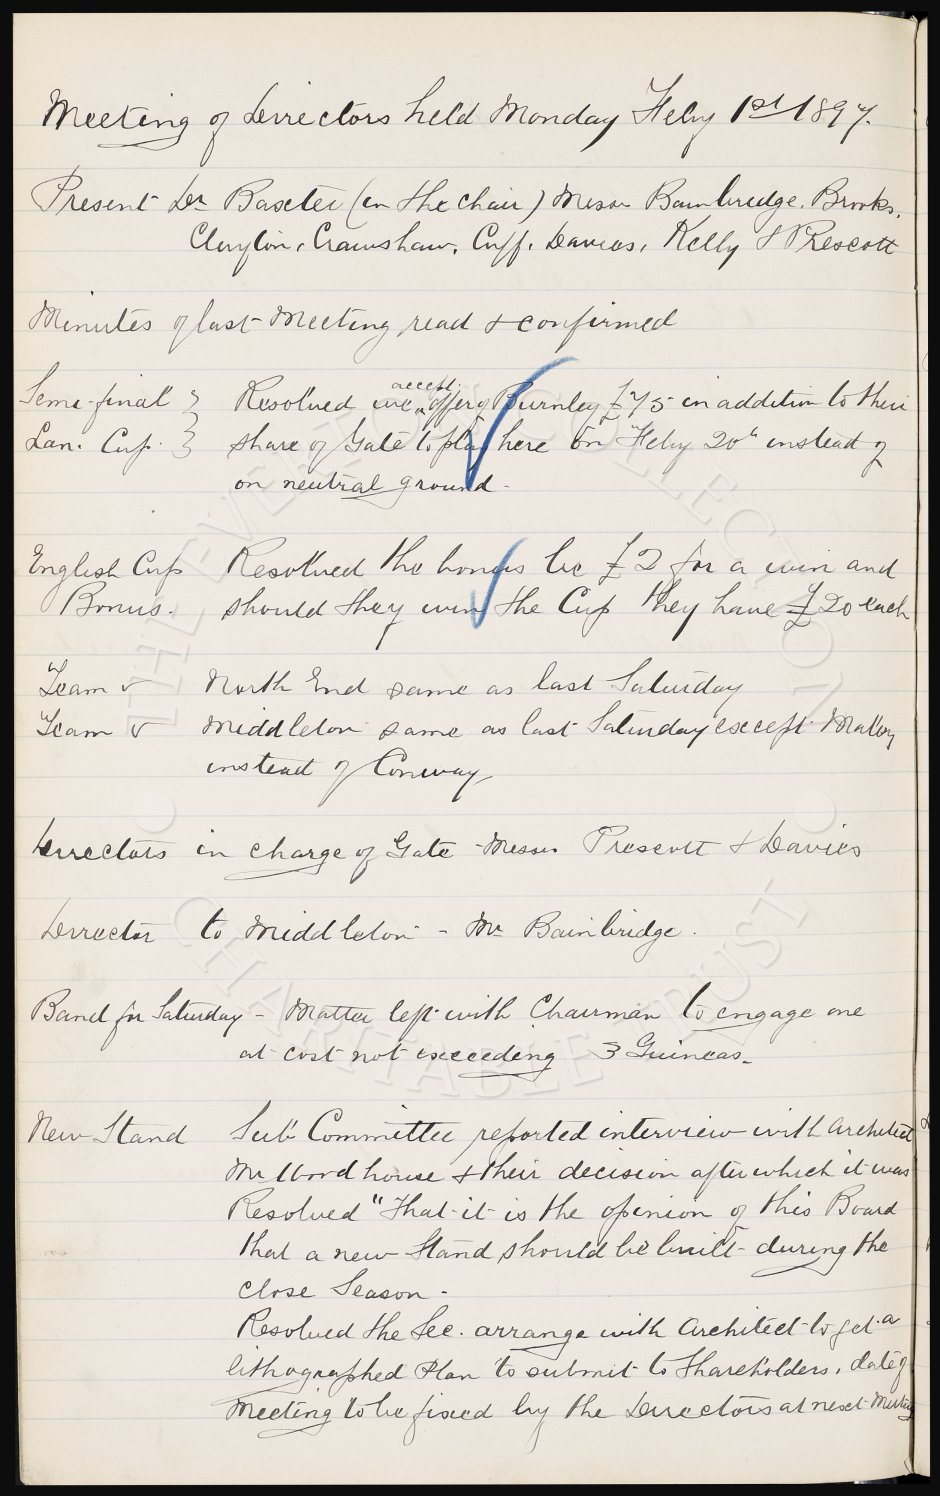 Meeting of Directors held Monday Feby 1st 1897.
Present Dr Baxter (in the chair) Messrs Bainbridge, Brooks,
Clayton, Crawshaw, Cuff, Davies, Kelly & Prescott
Minutes of last Meeting read & confirmed
Semi-final Resolved we accept offer of Burnley £75 in addition to their
Lan. Cup. share of Gate to play here on Feby 20th instead of
on neutral ground.
English Cup Resolved the bonus be £2 for a win and
Bonus. should they win the Cup they have £20 each
Team v North End same as last Saturday
Team v Middleton same as last Saturday except Maley
instead of Conway
Directors in charge of Gate Messrs Prescott & Davies
Director to Middleton - Mr Bainbridge.
Band for Saturday - Matter left with Chairman to engage one
at cost not exceeding 3 Guineas.
New Stand Sub Committee reported interview with Architect
Mr Woodhouse & their decision after which it was
Resolved "That it is the opinion of this Board
that a new Stand should be built during the
close Season.
Resolved the Sec. arrange with Architect to get a
lithographed Plan to submit to Shareholders, date of
meeting to be fixed by the Directors at next Meeting
THE EVERTON COLLECTION
CHARITABLE TRUST